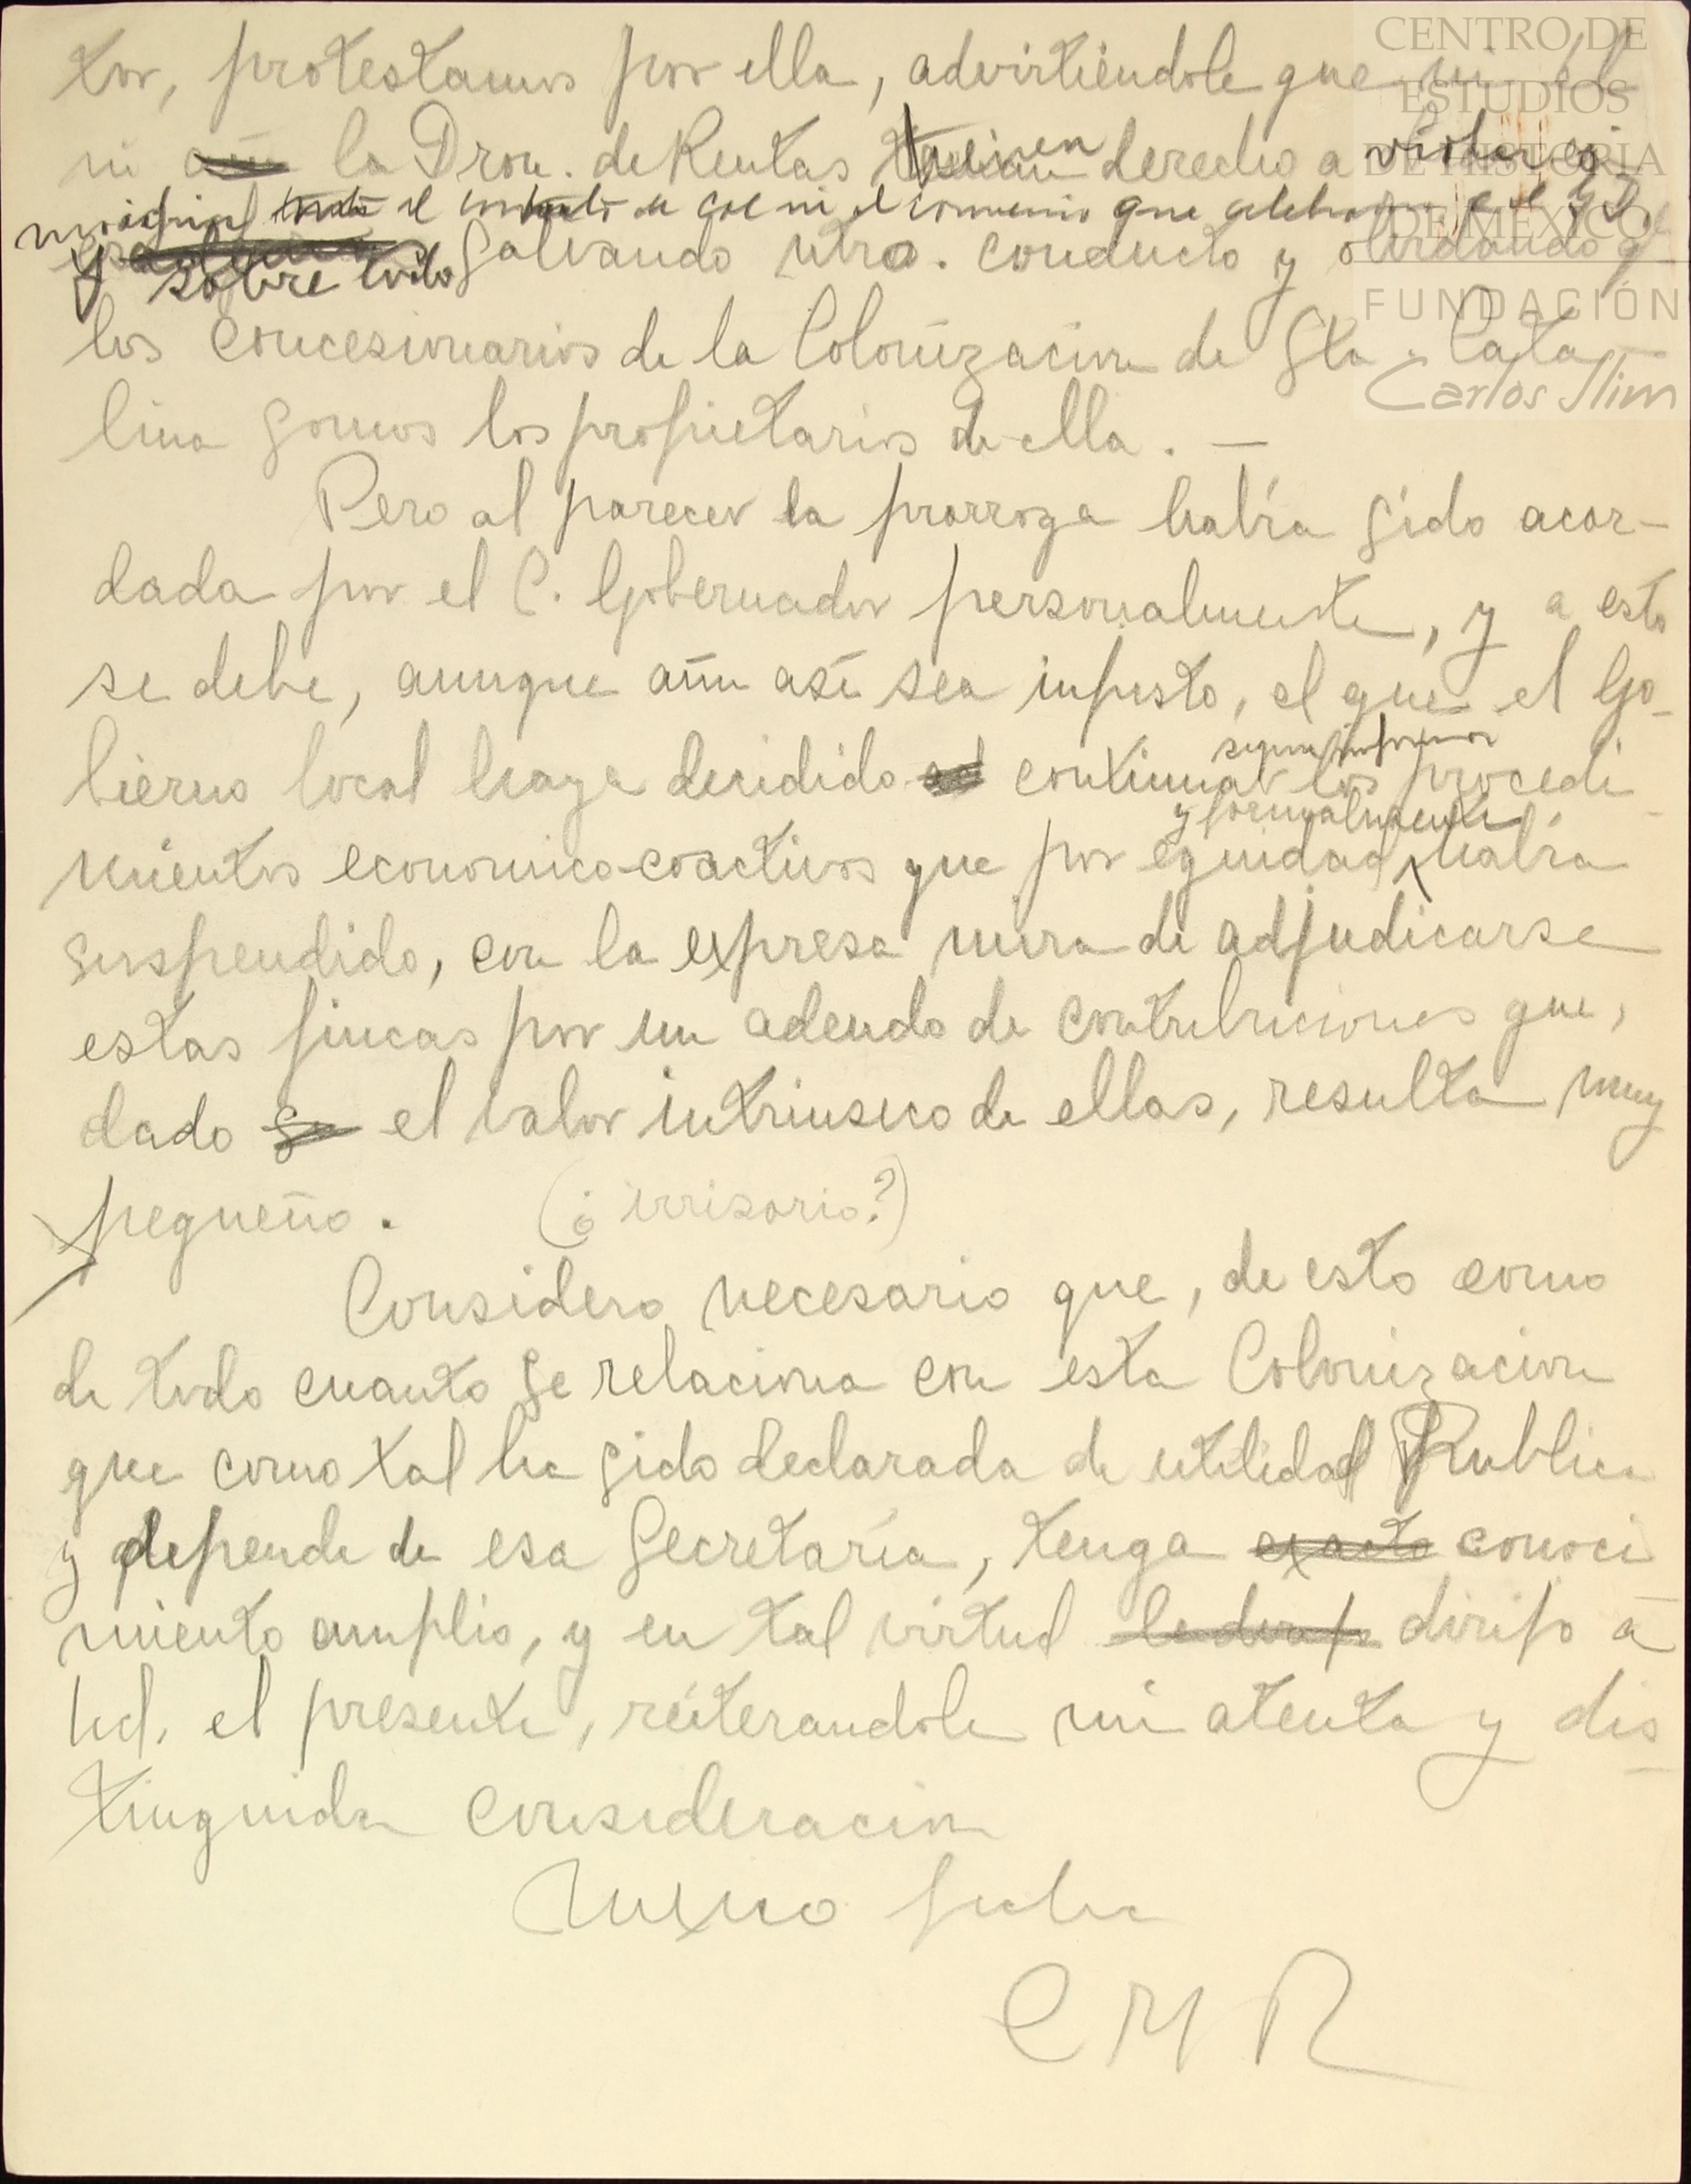 CENTRO DE
ESTUDIOS
DE HISTORIA
DE MÉXICO
FUNDACIÓN
Carlos Slim
tor, protestamos por ella, advirtiéndole que ni él
ni la Dron. de Rentas tienen derecho a violar ni
el contrato de Col ni el convenio que
y sobre todo salvando ntro. conducto y olvidando q
los concesionarios de la Colonización de Sta. Cata
lina somos los propietarios de ella. —
Pero al parecer la prorroga habría sido acor-
dada por el C. Gobernador personalmente, y a esto
se debe, aunque aún así sea injusto, el que el Go-
según informes
bierno local haya decidido continuar los procedi-
y formalmente
mientos economico-coactivos que por equidad, habra
suspendido, con la expresa mira de adjudicarse
estas fincas por un adeudo de contribuciones que,
dado el valor intrinseco de ellas, resulta muy
pequeño. (¿ irrisorio?)
Considero necesario que, de esto como
de todo cuanto se relaciona con esta Colonizacion
que como tal ha sido declarada de utilidad Publica
y depende de esa Secretaría, tenga exacto conoci
miento amplio, y en tal virtud dirijo á
Ud. el presente, reiterandole mi atenta y dis-
tinguida consideracion
Mexico fecha
CMR